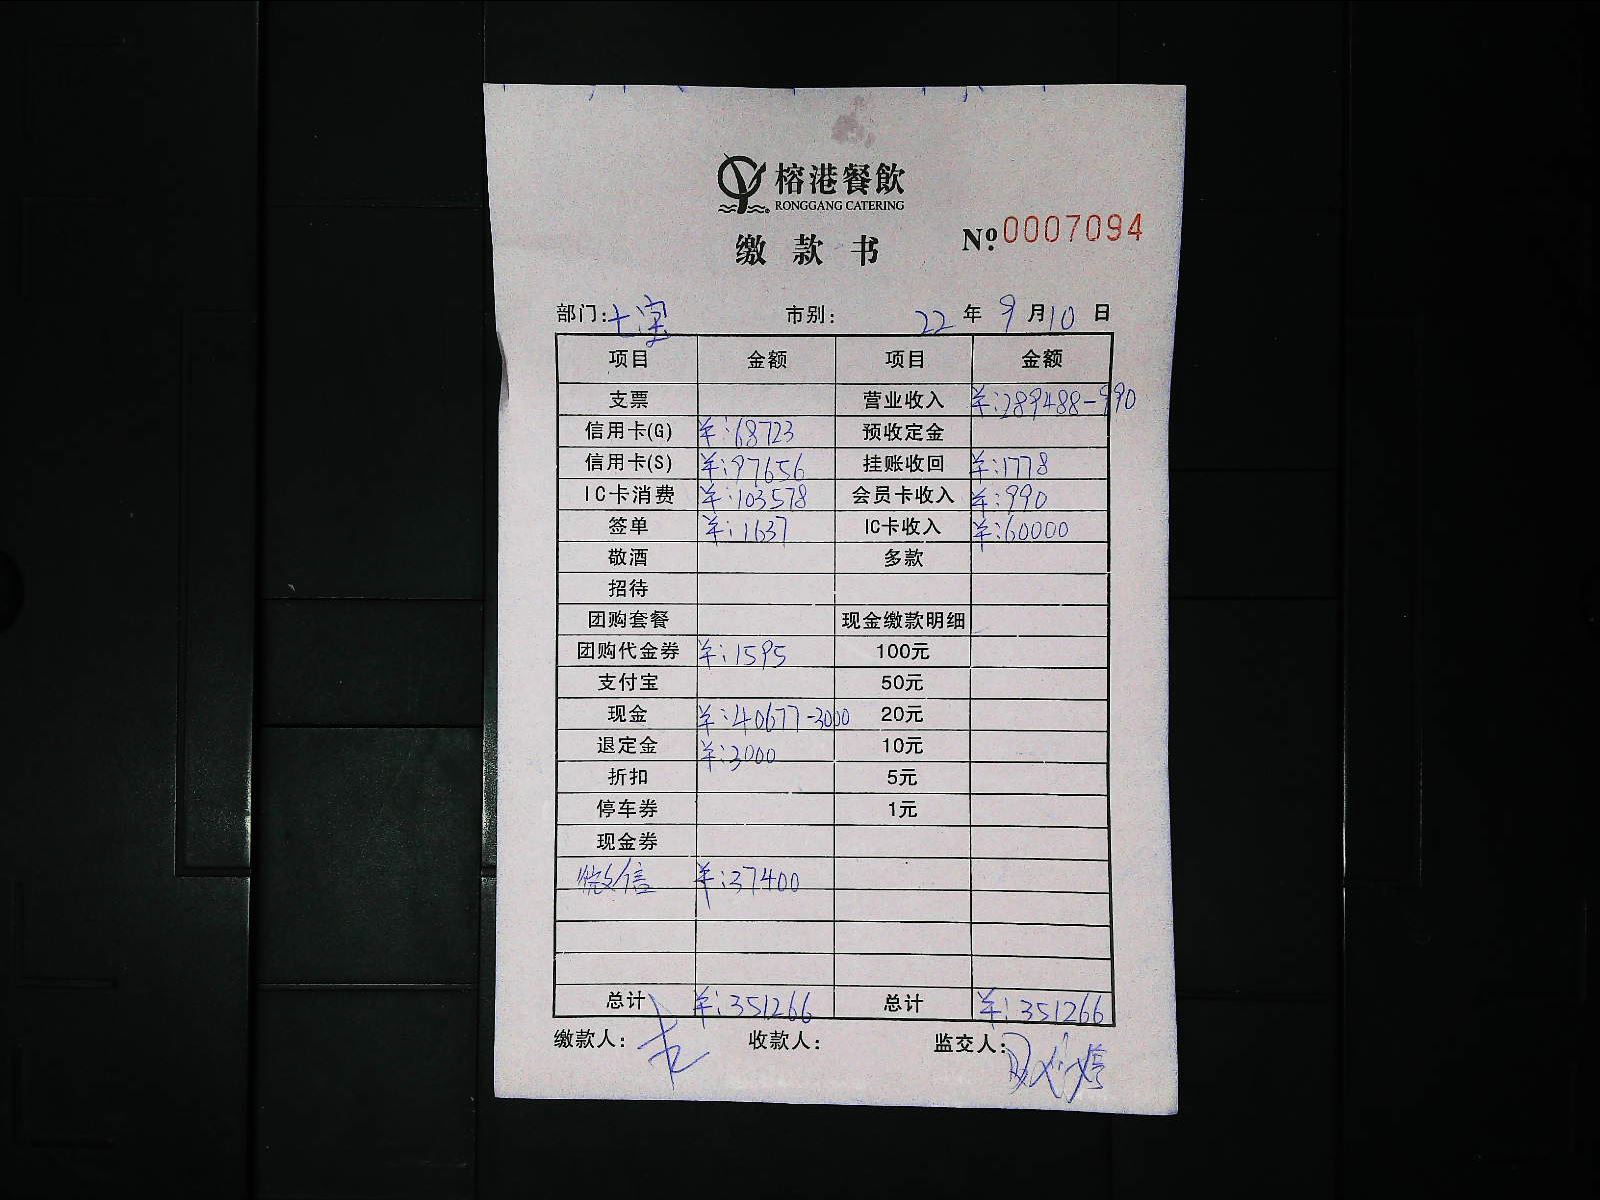 榕港餐飲
RONGGANG CATERING
缴款书 No.0007094
部门:七宝 市别: 22年9月10日
项目 金额 项目 金额
支票 营业收入 ¥:289488-990
信用卡(G) ¥:68723 预收定金
信用卡(S) ¥:97656 挂账收回 ¥:1778
IC卡消费 ¥:103578 会员卡收入 ¥:990
签单 ¥:1637 IC卡收入 ¥:60000
敬酒 多款
招待
团购套餐 现金缴款明细
团购代金券 ¥:1595 100元
支付宝 50元
现金 ¥:40677-3000 20元
退定金 ¥:3000 10元
折扣 5元
停车券 1元
现金券
微信 ¥:37400
总计 ¥:351266 总计 ¥:351266
缴款人: 收款人: 监交人: